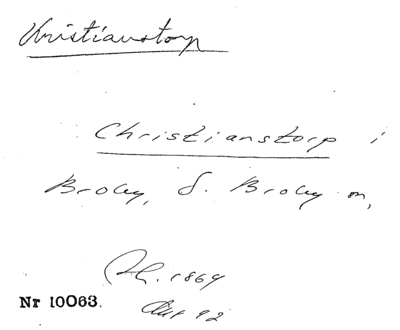 Kristianstorp
Christianstorp i
Broby, S. Broby sn,
1869
Nr 10063.
92